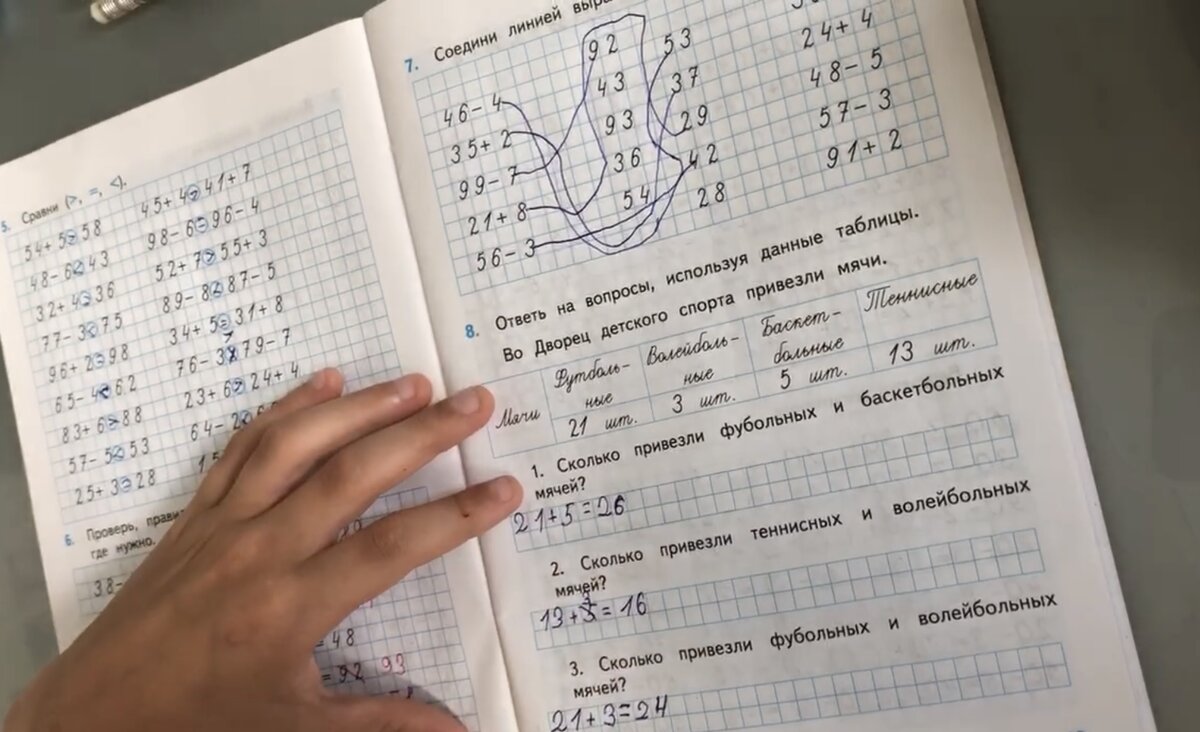 5. Сравни (>, =, <).
54+5>58 45+4>41+7
48-6<43 98-6=96-4
32+4=36 52+7>55+3
77-3<75 89-8<87-5
96+2=98 34+5=31+8
65-4<62 76-3>79-7
83+6>88 23+6>24+4
57-5<53 64-2<6
25+3=28 15
6. Проверь,
где нужно.
38-
=48
=92 93
7. Соедини линией
46-4 92 53 24+4
35+2 43 37 48-5
99-7 93 29 57-3
21+8 36 42 91+2
56-3 54 28
8. Ответь на вопросы, используя данные таблицы.
Во Дворец детского спорта привезли мячи.
Мячи Футболь-ные Волейболь-ные Баскет-больные Теннисные
21 шт. 3 шт. 5 шт. 13 шт.
1. Сколько привезли фубольных и баскетбольных
мячей?
21+5=26
2. Сколько привезли теннисных и волейбольных
мячей?
13+3=16
3. Сколько привезли фубольных и волейбольных
мячей?
21+3=24